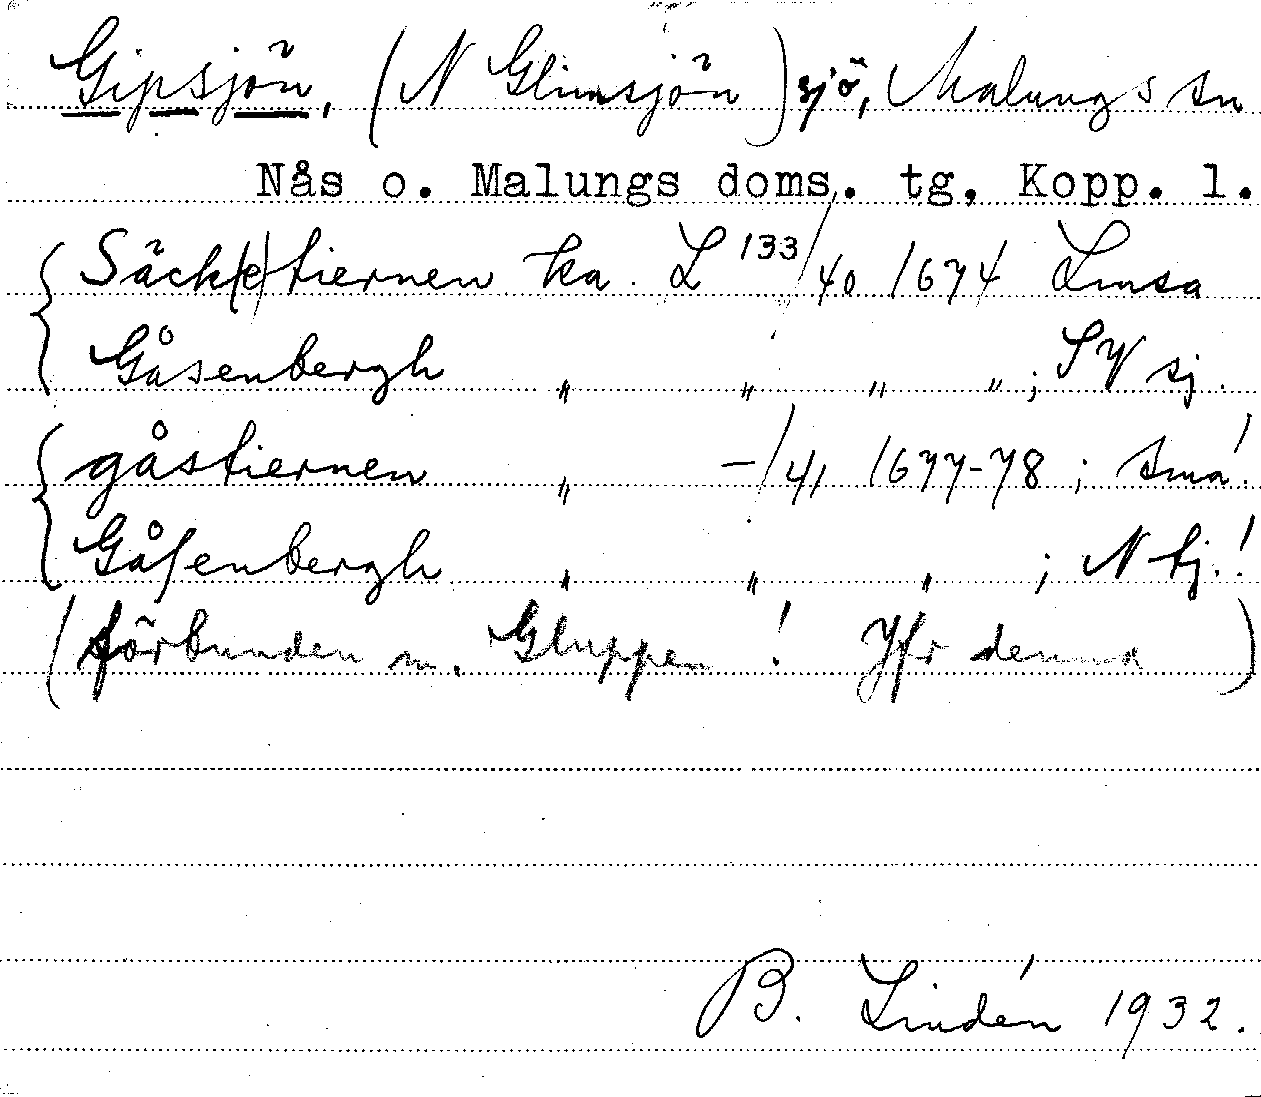 Gipsjön, (N Glimsjön) sjö, Malungs sn
Nås o. Malungs doms. tg, Kopp. l.
Säck(e)tiernen ka. L 133/40 1674 Limsa
Gåsenbergh " " " " ; SV sj.
gåstiernen " —/41 1677-78 ; små!
Gåſenbergh " " " ; N tj.!
(förbunden m. Gluppen! Jfr denna)
B. Lindén 1932.